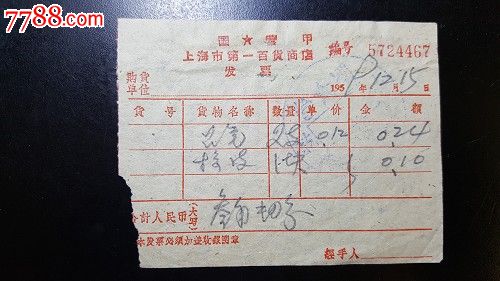 7788.com
国★营 甲
上海市第一百货商店 编号 5724467
发票
购货单位 195 年 12 月 15 日
货号 货物名称 数量 单价 金额
2支 0.12 0.24
橡皮 1块 0.10
合计人民币(大写) 叁角肆分
本发票必须加盖收银图章
经手人